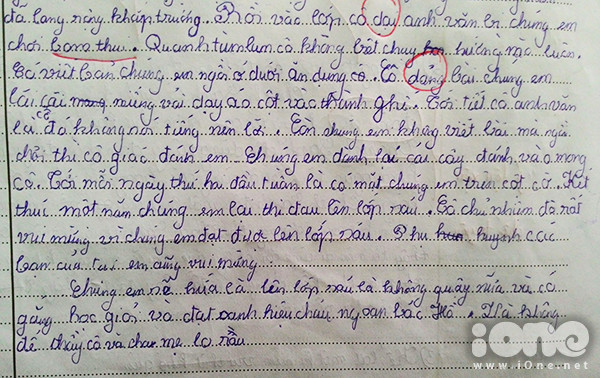 đá lang này khắp trường. Rồi vào lớp cô day anh văn bi chung em
chơi bom thư. Quanh tumlum cô không biết chuy hướng mo luôn.
Cô viết bản chúng em ngồi ở dưới ăn dung cơ. Cô đảng bài chúng em
lấy cái miếng vải day áo cột vào thành ghi. Tới tiết cô anh văn
là cô đó không nói tiếng nên lời. Còn chung em không viết bài mà ngồi
chơi thì cô giác đánh em. Chúng em dành lai cái cây đánh vào mong
cô. Tới mỗi ngày thứ ha đầu tuần là co mặt chung em trên cột cờ. Kết
thúi một năm chúng em lai thi đau lên lớp náu. Cô chủ nhiêm đa rất
vui mừng vì chung em đạt đươt lên lớp náu. Phu huynh các
ban cua tui em cũng vui mừng
Chúng em sẽ hứa là lên lớp sáu là không quây nữa và cố
gắng hoc giỏi và đat sanh hiệu cháu ngoan bác Hồ. Và không
đê thầy cô và cha mẹ lo rầu
iOne
www.iOne.net